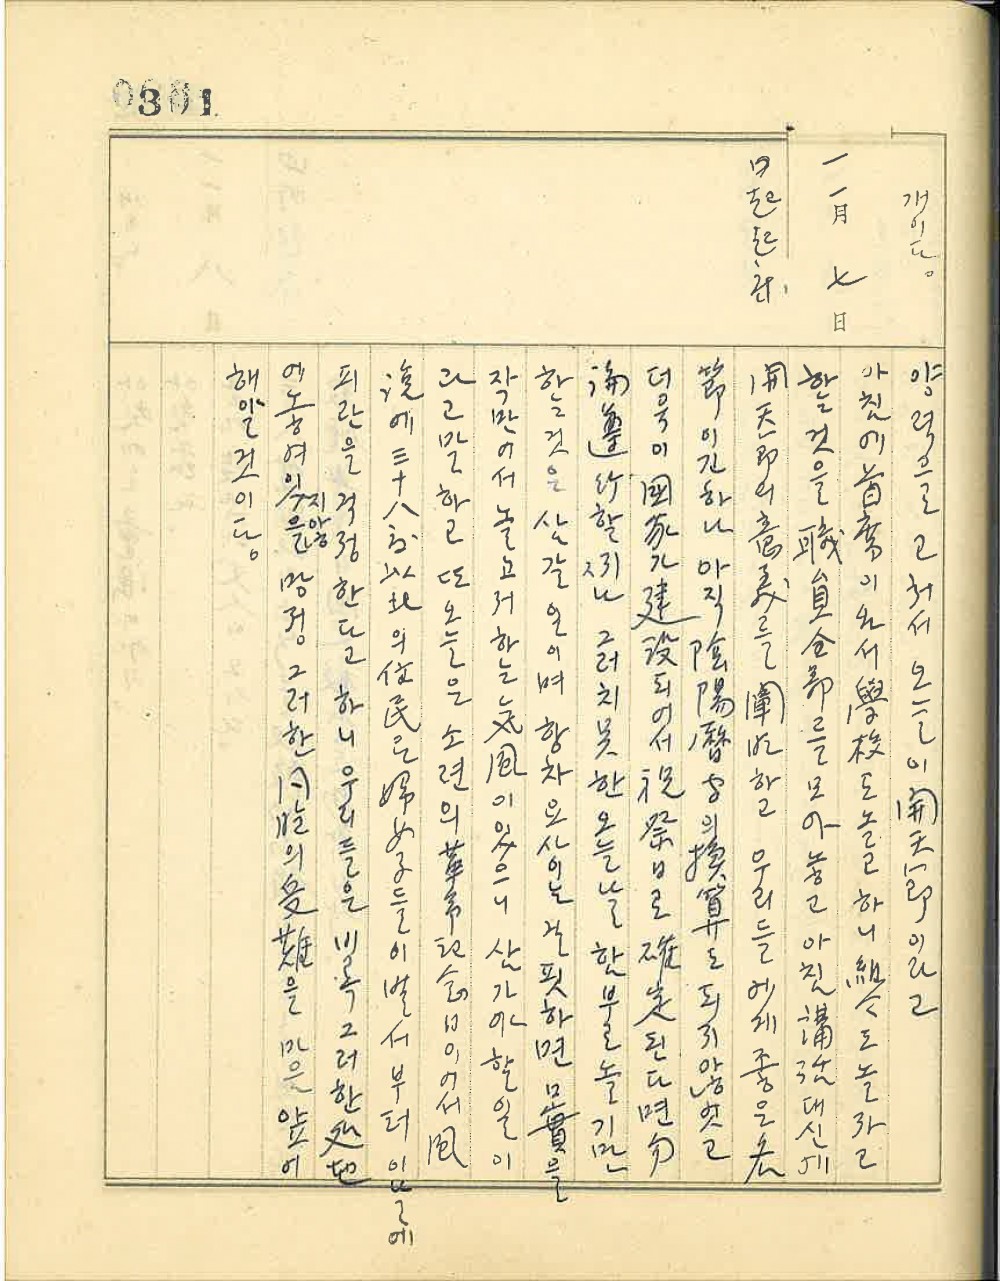 301
개이다.
一一月 七 日
양력으로 고처서 오늘이 開天節이라고
아침에 首席이 와서 學校도 놀고 하니 組合도 놀라고
할것을 職員全部를 모아놓고 아침 講話대신에
開天節의 意義를 闡明하고 우리들에게 좋은 名
節이긴하나 아직 陰陽曆 의 換算도 되지않엇고
더욱이 國家가 建設되어서 祝祭日로 確定된다면 勿
論 遵行할지나 그러치못한 오늘날 함부로 놀기만
한을것은 삼갈 일이며 항차 요사이는 걸핏하면 口實을
작만어서 놀고저하는 氣風이 있으니 삼가야할일이
라고 말하고 또 오늘은 소련의 革命記念日이어서 風
說에 三十八度以北의 住民 婦女子들이 벌서부터 일본에
피란을 걱정한다고 하니 우리들은 비록 그러한 處地
에 놓여있지않을 망정 그러한 同胞의 受難을 마음 앞어
해야할것이다.